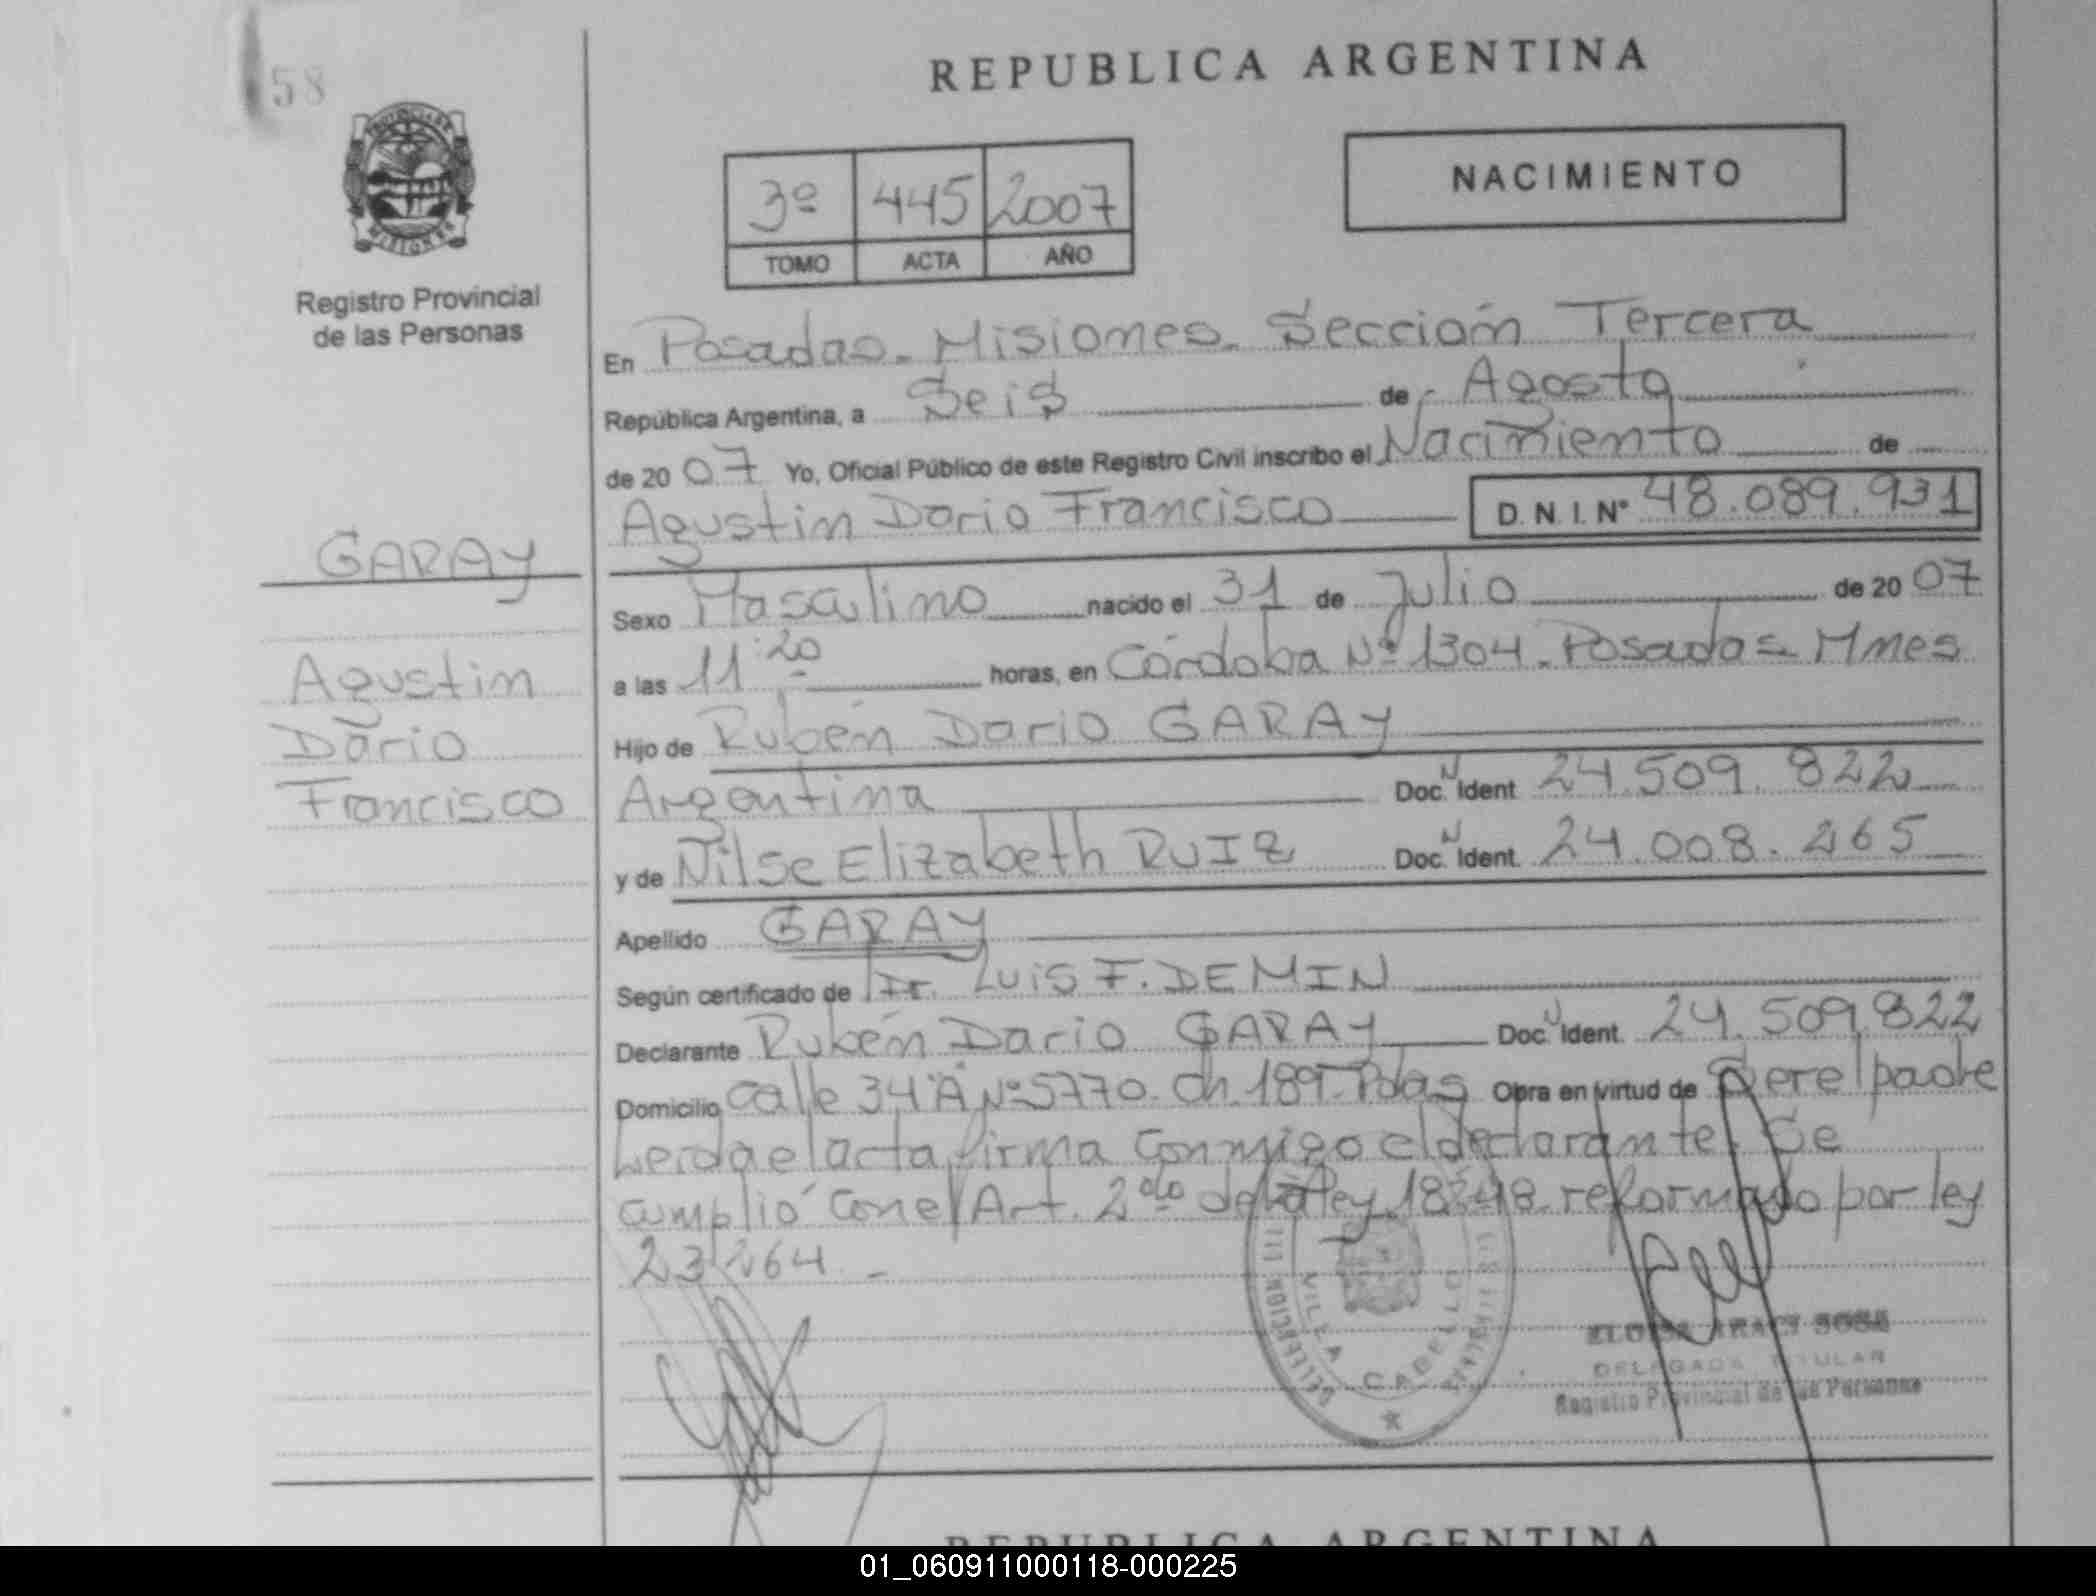 58
REPUBLICA ARGENTINA
PROVINCIA DE MISIONES
Registro Provincial
de las Personas
3º 445 2007
TOMO ACTA AÑO
NACIMIENTO
En Posadas. Misiones. Sección Tercera
República Argentina, a Seis de Agosto
de 2007 Yo, Oficial Público de este Registro Civil inscribo el Nacimiento de
Agustin Dario Francisco D.N.I.Nº 48.089.931
GARAY
Agustin
Dario
Francisco
Sexo Masculino nacido el 31 de Julio de 2007
a las 11:20 horas, en Córdoba Nº 1304. Posadas Mnes
Hijo de Rubén Dario GARAY
Argentina Doc. N Ident 24.509.822
y de Nilse Elizabeth RUIZ Doc. N Ident. 24.008.265
Apellido GARAY
Según certificado de Dr. Luis F. DEMIN
Declarante Rubén Dario GARAY Doc. N Ident. 24.509.822
Domicilio calle 34 "A" Nº 5770. Ch. 189. Pdas Obra en virtud de Ser el padre
Leida el acta firma conmigo el declarante. Se
cumplió con el Art. 2do de la ley 18248. reformado por ley
23264.-
DELEGACION III
VILLA CABELLO
ELOISA ARACY SOSA
DELEGADA TITULAR
Registro Provincial de las Personas
REPUBLICA ARGENTINA
01_060911000118-000225